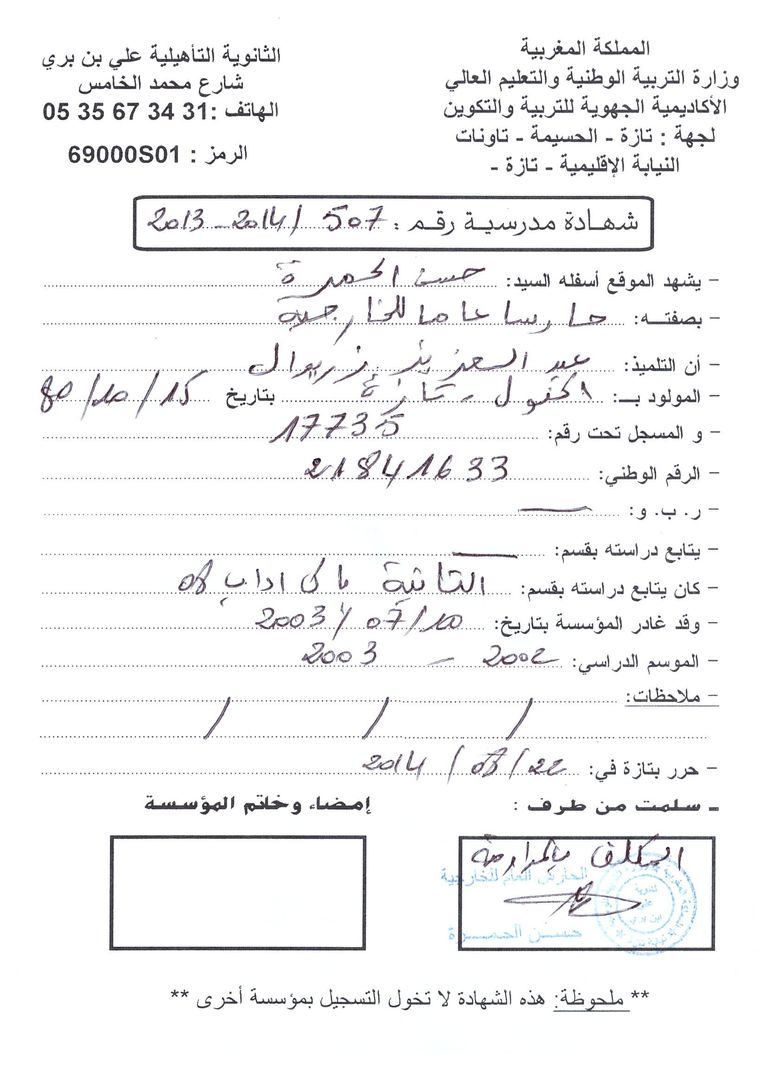 المملكة المغربية
وزارة التربية الوطنية والتعليم العالي
الأكاديمية الجهوية للتربية والتكوين
لجهة : تازة - الحسيمة - تاونات
النيابة الإقليمية - تازة -
الثانوية التأهيلية علي بن بري
شارع محمد الخامس
الهاتف :31 34 67 35 05
الرمز : 69000S01
شهادة مدرسية رقم : 507 / 2014 - 2013
- يشهد الموقع أسفله السيد: حسن الحمرة
- بصفته: حارسا عاما للخارجية
- أن التلميذ: عبد العزيز زريوال
- المولود بـ: تازة بتاريخ 15/10/80
- و المسجل تحت رقم: 17735
- الرقم الوطني: 21841633
- ر. ب. و: ـــ
- يتابع دراسته بقسم: ـــ
- كان يتابع دراسته بقسم: الثانية اداب 08
- وقد غادر المؤسسة بتاريخ: 10/07/2003
- الموسم الدراسي: 2002 - 2003
- ملاحظات:
/ / /
- حرر بتازة في: 22/08/2014
- سلمت من طرف :
إمضاء وخاتم المؤسسة
المكلف بالمداومة
الحارس العام للخارجية
حسن الحمرة
** ملحوظة: هذه الشهادة لا تخول التسجيل بمؤسسة أخرى **